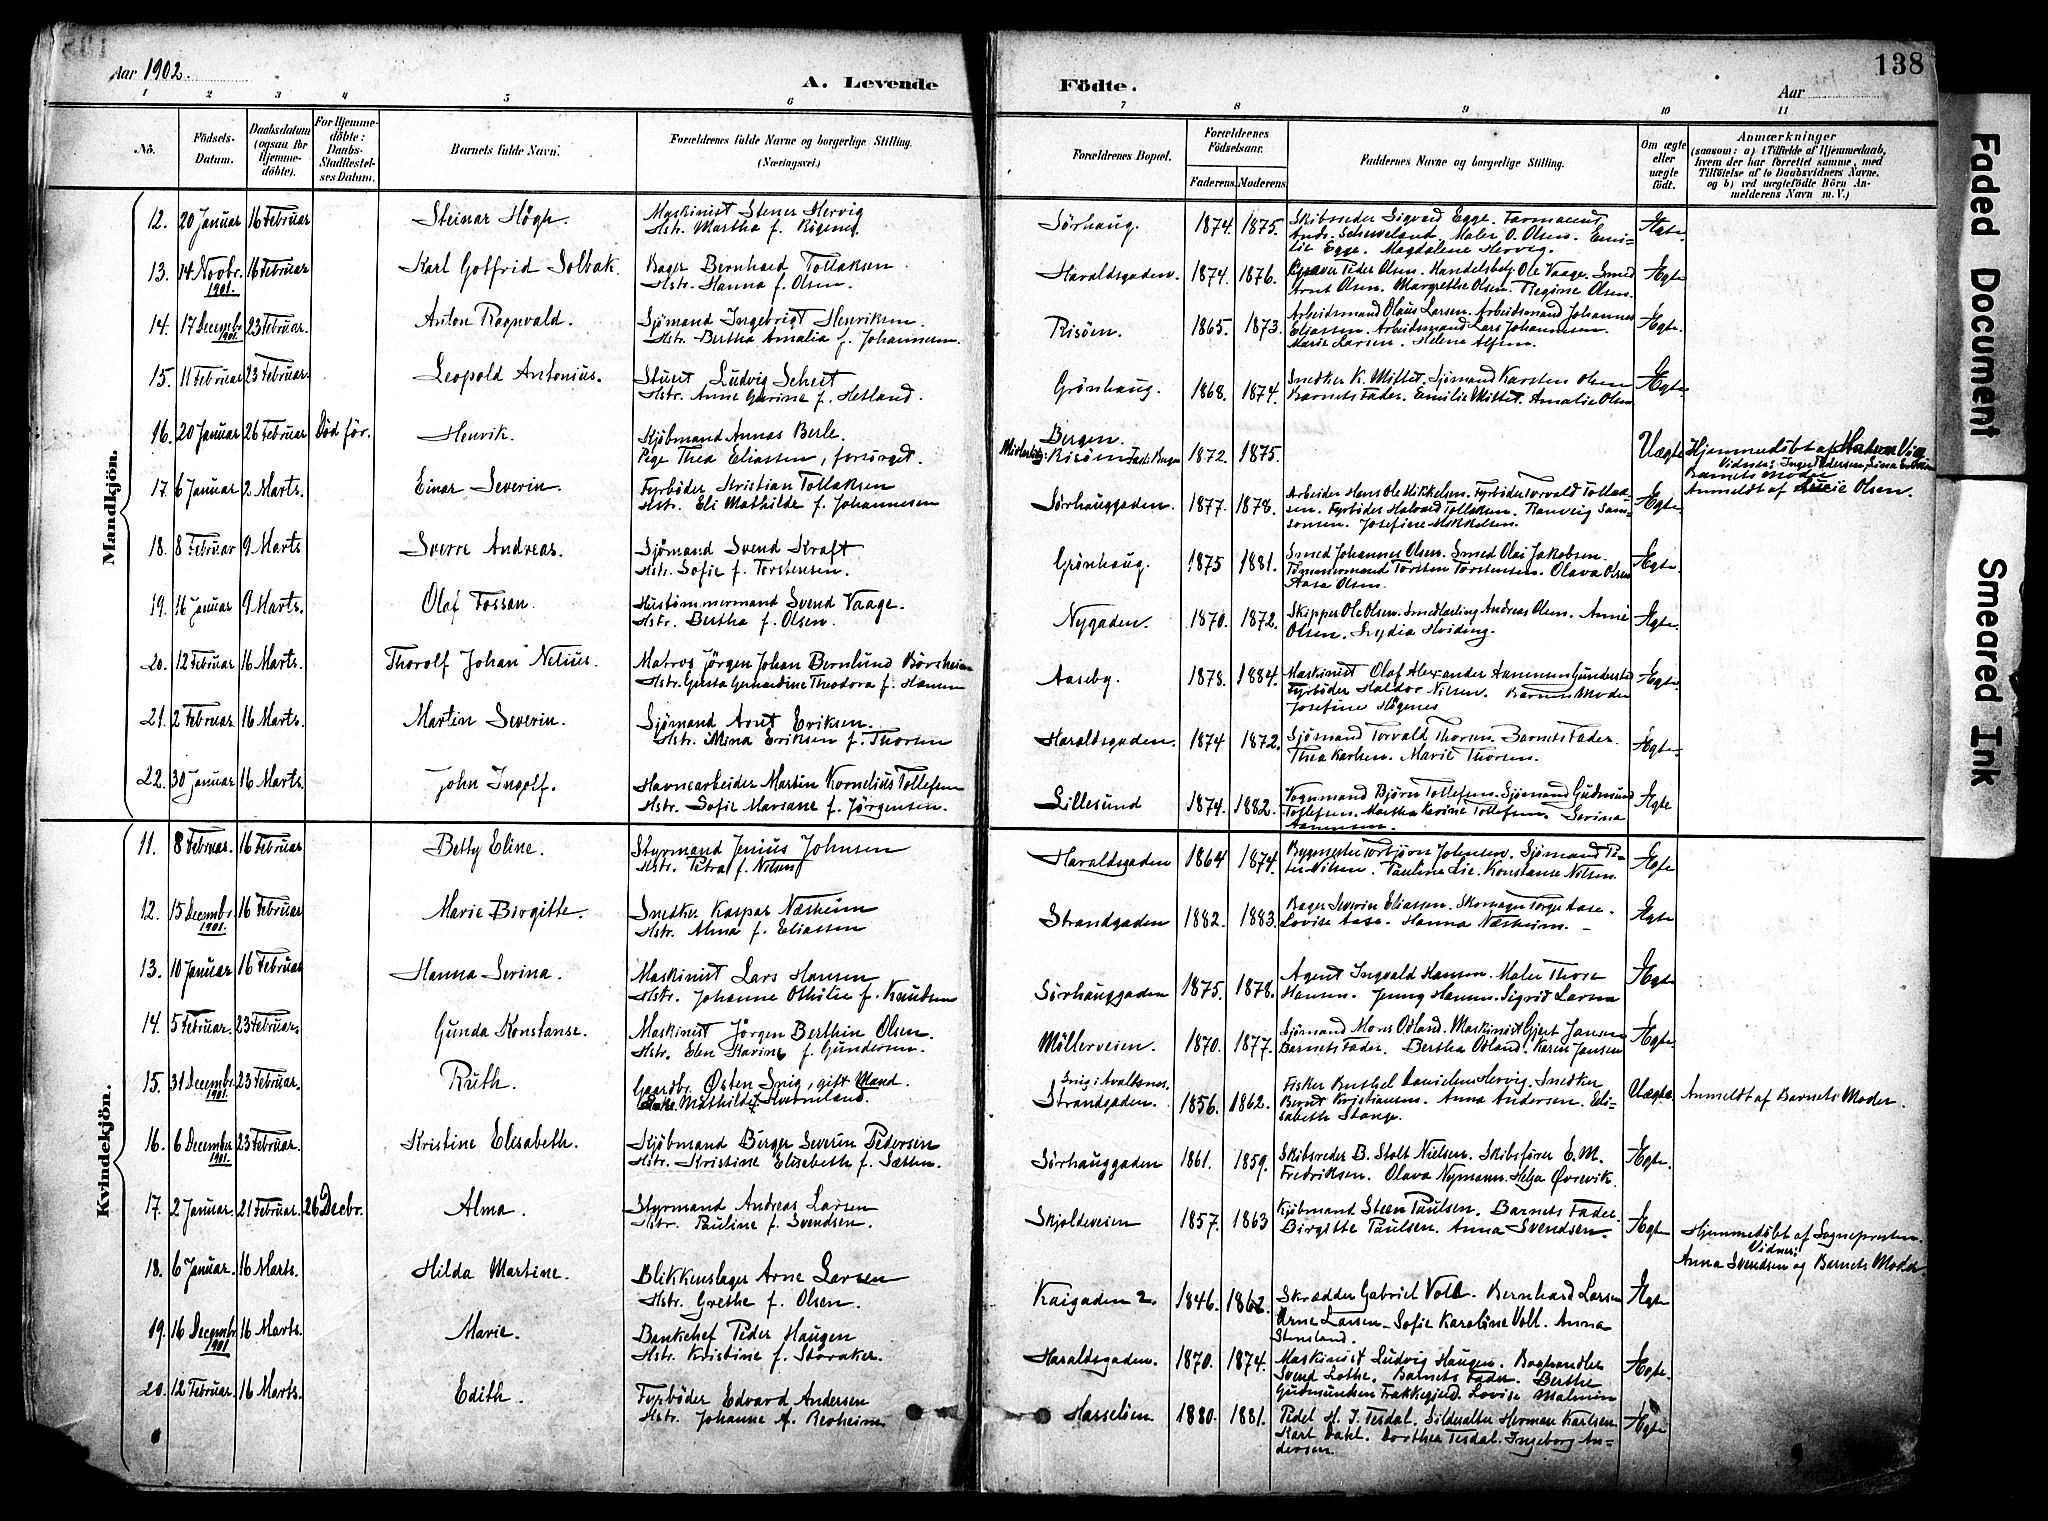 138
Aar 1902.
A. Levende Födte.
Aar
1 2 3 4 5 6 7 8 9 10 11
No.
Födsels-Datum.
Daabsdatum (ogsaa for Hjemme-döbte).
For Hjemme-döbte: Daabs-Stadfæstel-ses Datum.
Barnets fulde Navn.
Forældrenes fulde Navne og borgerlige Stilling. (Næringsvei.)
Forældrenes Bopæl.
Forældrenes Födselsaar.
Faderens. Moderens.
Faddernes Navne og borgerlige Stilling.
Om ægte eller uægte födt.
Anmærkninger
(saasom: a) i Tilfælde af Hjemmedaab,
hvem der har forrettet samme, med
Tilföielse af to Daabsvidners Navne,
og b) ved uægtefödte Börn An-
melderens Navn m. V.)
Mandkjön.
12. 20 Januar 16 Februar Steinar Högh. Maskinist Stener Hervig
Hstr. Martha f. Sørhaug. 1874. 1875. Skibsreder Sigvard Egge.
Maler O. Olsen. Emi-
lie Egge. Magdalene Hervig. Ægte.
13. 14 Novbr. 1901. 16 Februar Karl Gotfrid Solbak. Bager Bernhard Tollaksen.
Hstr. Hanna f. Olsen. Haraldsgaden. 1874. 1876. Peder Olsen. Handelsbetj. Ole Vaage. Smed
Arnt Olsen. Margrethe Olsen. Regine Olsen. Ægte
14. 17 Decembr. 1901. 23 Februar. Anton Ragnvald. Sjömand Ingebrigt Henriksen.
Hstr. Bertha Amalia f. Johannesen. Risöen. 1865. 1873. Arbeidsmand Olaus Larsen. Arbeidsmand Johannes
Eliassen. Arbeidsmand Lars Johannesen.
Marie Larsen. Helene Alfsen. Ægte.
15. 11 Februar 23 Februar. Leopold Antonius. Stuert Ludvig
Hstr. Anne Gurine f. Hetland. Grønhaug. 1868. 1874. Snedker K. Mittet. Sjömand Karsten Olsen
Barnets Fader. Emilie Mittet. Amalie Olsen Ægte
16. 20 Januar 26 Februar Död för. Henvik. Kjöbmand Annas Berle.
Pige Thea Eliassen, forsörget. Bergen.
Risöen 1872. 1875. Uægte Hjemmedöbt af
Vidner:
Barnets Moder
Anmeldt af Olsen.
17. 6 Januar 2 Marts. Einar Severin. Fyrböder Kristian Tollaksen
Hstr. Eli Mathilde f. Johannesen Sørhauggaden. 1877. 1878. Arbeider Hans Ole Mikkelsen. Fyrböder Torvald Tollak-
sen. Fyrböder Halvard Tollaksen. Ranveig Sam-
sonsen. Josefine Mikkelsen. Ægte.
18. 8 Februar 9 Marts Sverre Andreas. Sjömand Svend Kraft
Hstr. Sofie f. Torstensen. Grønhaug. 1875 1881. Smed Johannes Olsen. Smed Olai Jakobsen.
Tömmermand Torsten Torstensen. Olava Olsen
Aasa Olsen. Ægte.
19. 16 Januar 9 Marts. Olaf Fossan. Hustömmermand Svend Vaage.
Hstr. Bertha f. Olsen. Nygaden. 1870. 1872. Skipper Ole Olsen. Smedlærling Andreas Olsen. Anne
Olsen. Lydia Hviding. Ægte.
20. 12 Februar 16 Marts. Thorolf Johan Nelius. Matros Jörgen Johan Bernlund Börsheim
Hstr. Gusta Gerhardine Theodora f. Hansen Aaseby. 1878. 1884. Maskinist Olaf Alexander
Fyrböder Haldor Nilsen. Barnets Moder
Josefine Högenes Ægte.
21. 2 Februar 16 Marts. Martin Severin. Sjömand Arnt Eriksen.
Hstr. Mina Eriksen f. Thorsen Haraldsgaden. 1874 1872. Sjömand Torvald Thorsen. Barnets Fader.
Thea Karlsen. Marie Thorsen. Ægte.
22. 30 Januar 16 Marts. John Ingolf. Havnearbeider Martin Kornelius Tollefsen
Hstr. Sofie Mariane f. Jörgensen. Lillesund 1874. 1882. Vognmand Björn Tollefsen. Sjömand Gudmund
Tollefsen. Martha Karine Tollefsen. Serina
Ægte
Kvindekjön.
11. 8 Februar. 16 Februar Betty Eline. Styrmand Junius Johnsen
Hstr. Petra f. Nilsen Haraldsgaden 1864 1874. Bygmester Torbjörn Johnsen. Sjömand Pe-
ter Nilsen. Paulina Lie. Konstanse Nilsen. Ægte
12. 15 Decembr. 1901. 16 Februar Marie Birgitte. Snedker Kaspar Næsheim
Hstr. Alma f. Eliassen Strandgaden 1882. 1883. Bager Severin Eliassen. Skomager Torger Aase.
Lovise Aase. Hanna Næsheim. Ægte
13. 10 Januar 16 Februar Hanna Serina. Maskinist Lars Hansen
Hstr. Johanne Othilie f. Knudsen Sørhauggaden 1875. 1878. Agent Ingvald Hansen. Maler Thore
Hansen. Jenny Hansen. Sigrid Larsen Ægte
14. 5 Februar. 23 Februar. Gunda Konstanse. Maskinist Jörgen Berthin Olsen.
Hstr. Elen Karine f. Gundersen. Möllerveien. 1870. 1877. Sjömand Mons Odland. Maskinist Gjert Jansen
Barnets Fader. Bertha Odland. Karen Jansen Ægte.
15. 31 Decembr. 1901. 23 Februar Ruth. Gaardbr. Østen Snig, gift Mand.
Mathilde Kverneland. Snig i Avaldsnes.
Strandgaden. 1856. 1862. Fisker Danielsen Hervig. Snedker
Berndt Kristiansen. Anna Andersen. Eli-
sabeth Stange. Uægte. Anmeldt af Barnets Moder.
16. 6 December 1901. 23 Februar. Kristine Elisabeth. Kjöbmand Berger Severin Pedersen
Hstr. Kristine Elisabeth f. Sætten. Sørhauggaden 1861. 1859. Skibsreder B. Stolt Nielsen. Skibsförer E. M.
Fredriksen. Olava Nymann. Helga Øvrevik. Ægte.
17. 2 Januar. 21 Februar. 26 Decbr. Alma. Styrmand Andreas Larsen
Hstr. Pauline f. Svendsen. Skjoldeveien 1857. 1863 Kjöbmand Steen Paulsen. Barnets Fader.
Birgitte Paulsen. Anna Svendsen. Ægte Hjemmedöbt af Sognepresten.
Vidner:
Anna Svendsen og Barnets Moder.
18. 6 Januar. 16 Marts. Hilda Martine. Blikkenslager Arne Larsen
Hstr. Grethe f. Olsen. Kaigaden 2. 1846. 1862. Skrædder Gabriel Voll. Bernhard Larsen
Arne Larsen. Sofie Karoline Voll. Anna
Stensland. Ægte
19. 16 Decembr. 1901 16 Marts. Marie. Bankchef Peder Haugen
Hstr. Kristine f. Storaker. Haraldsgaden. 1870. 1874. Maskinist Ludvig Haugen. Boghandler
Svend Lothe. Barnets Fader. Berthe
Gudmundsen Frakkagjerd. Lovise Malmin Ægte.
20. 12 Februar. 16 Marts. Edith. Fyrböder Edvard Andersen
Hstr. Johanne f. Hasselöen. 1880. 1881. Pedel H. J. Tesdal. Sildesalter Herman Karlsen
Karl Dahl. Dorthea Tesdal. Ingeborg An-
dersen. Ægte
Faded Document
Smeared Ink